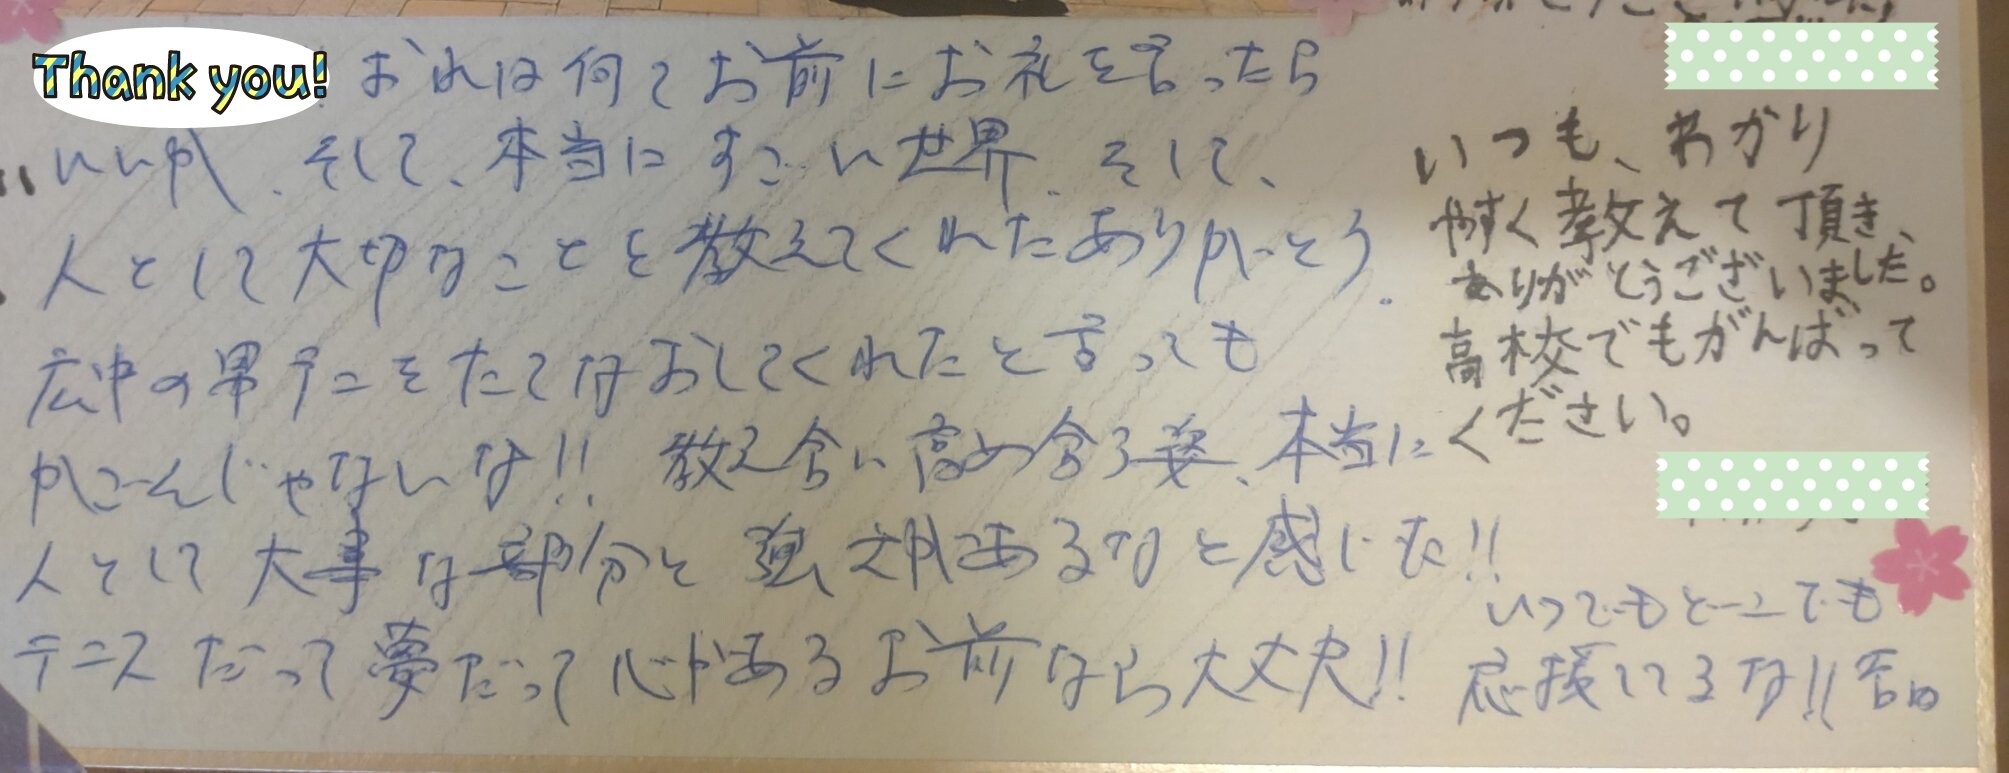 Thank you!
おれは何てお前にお礼を言ったら
いいか、そして、本当にすごい世界、そして、
人として大切なことを教えてくれたありがとう.
広中の男テニをたてなおしてくれたと言っても
かごんじゃないな!! 教え合い高め合う姿、本当に
人として大事な部分と強さがあるなと感じた!!
テニスだって夢だって心があるお前なら大丈夫!!
いつでもどこでも
応援してるな!!
いつも、わかり
やすく教えて頂き、
ありがとうございました。
高校でもがんばって
ください。